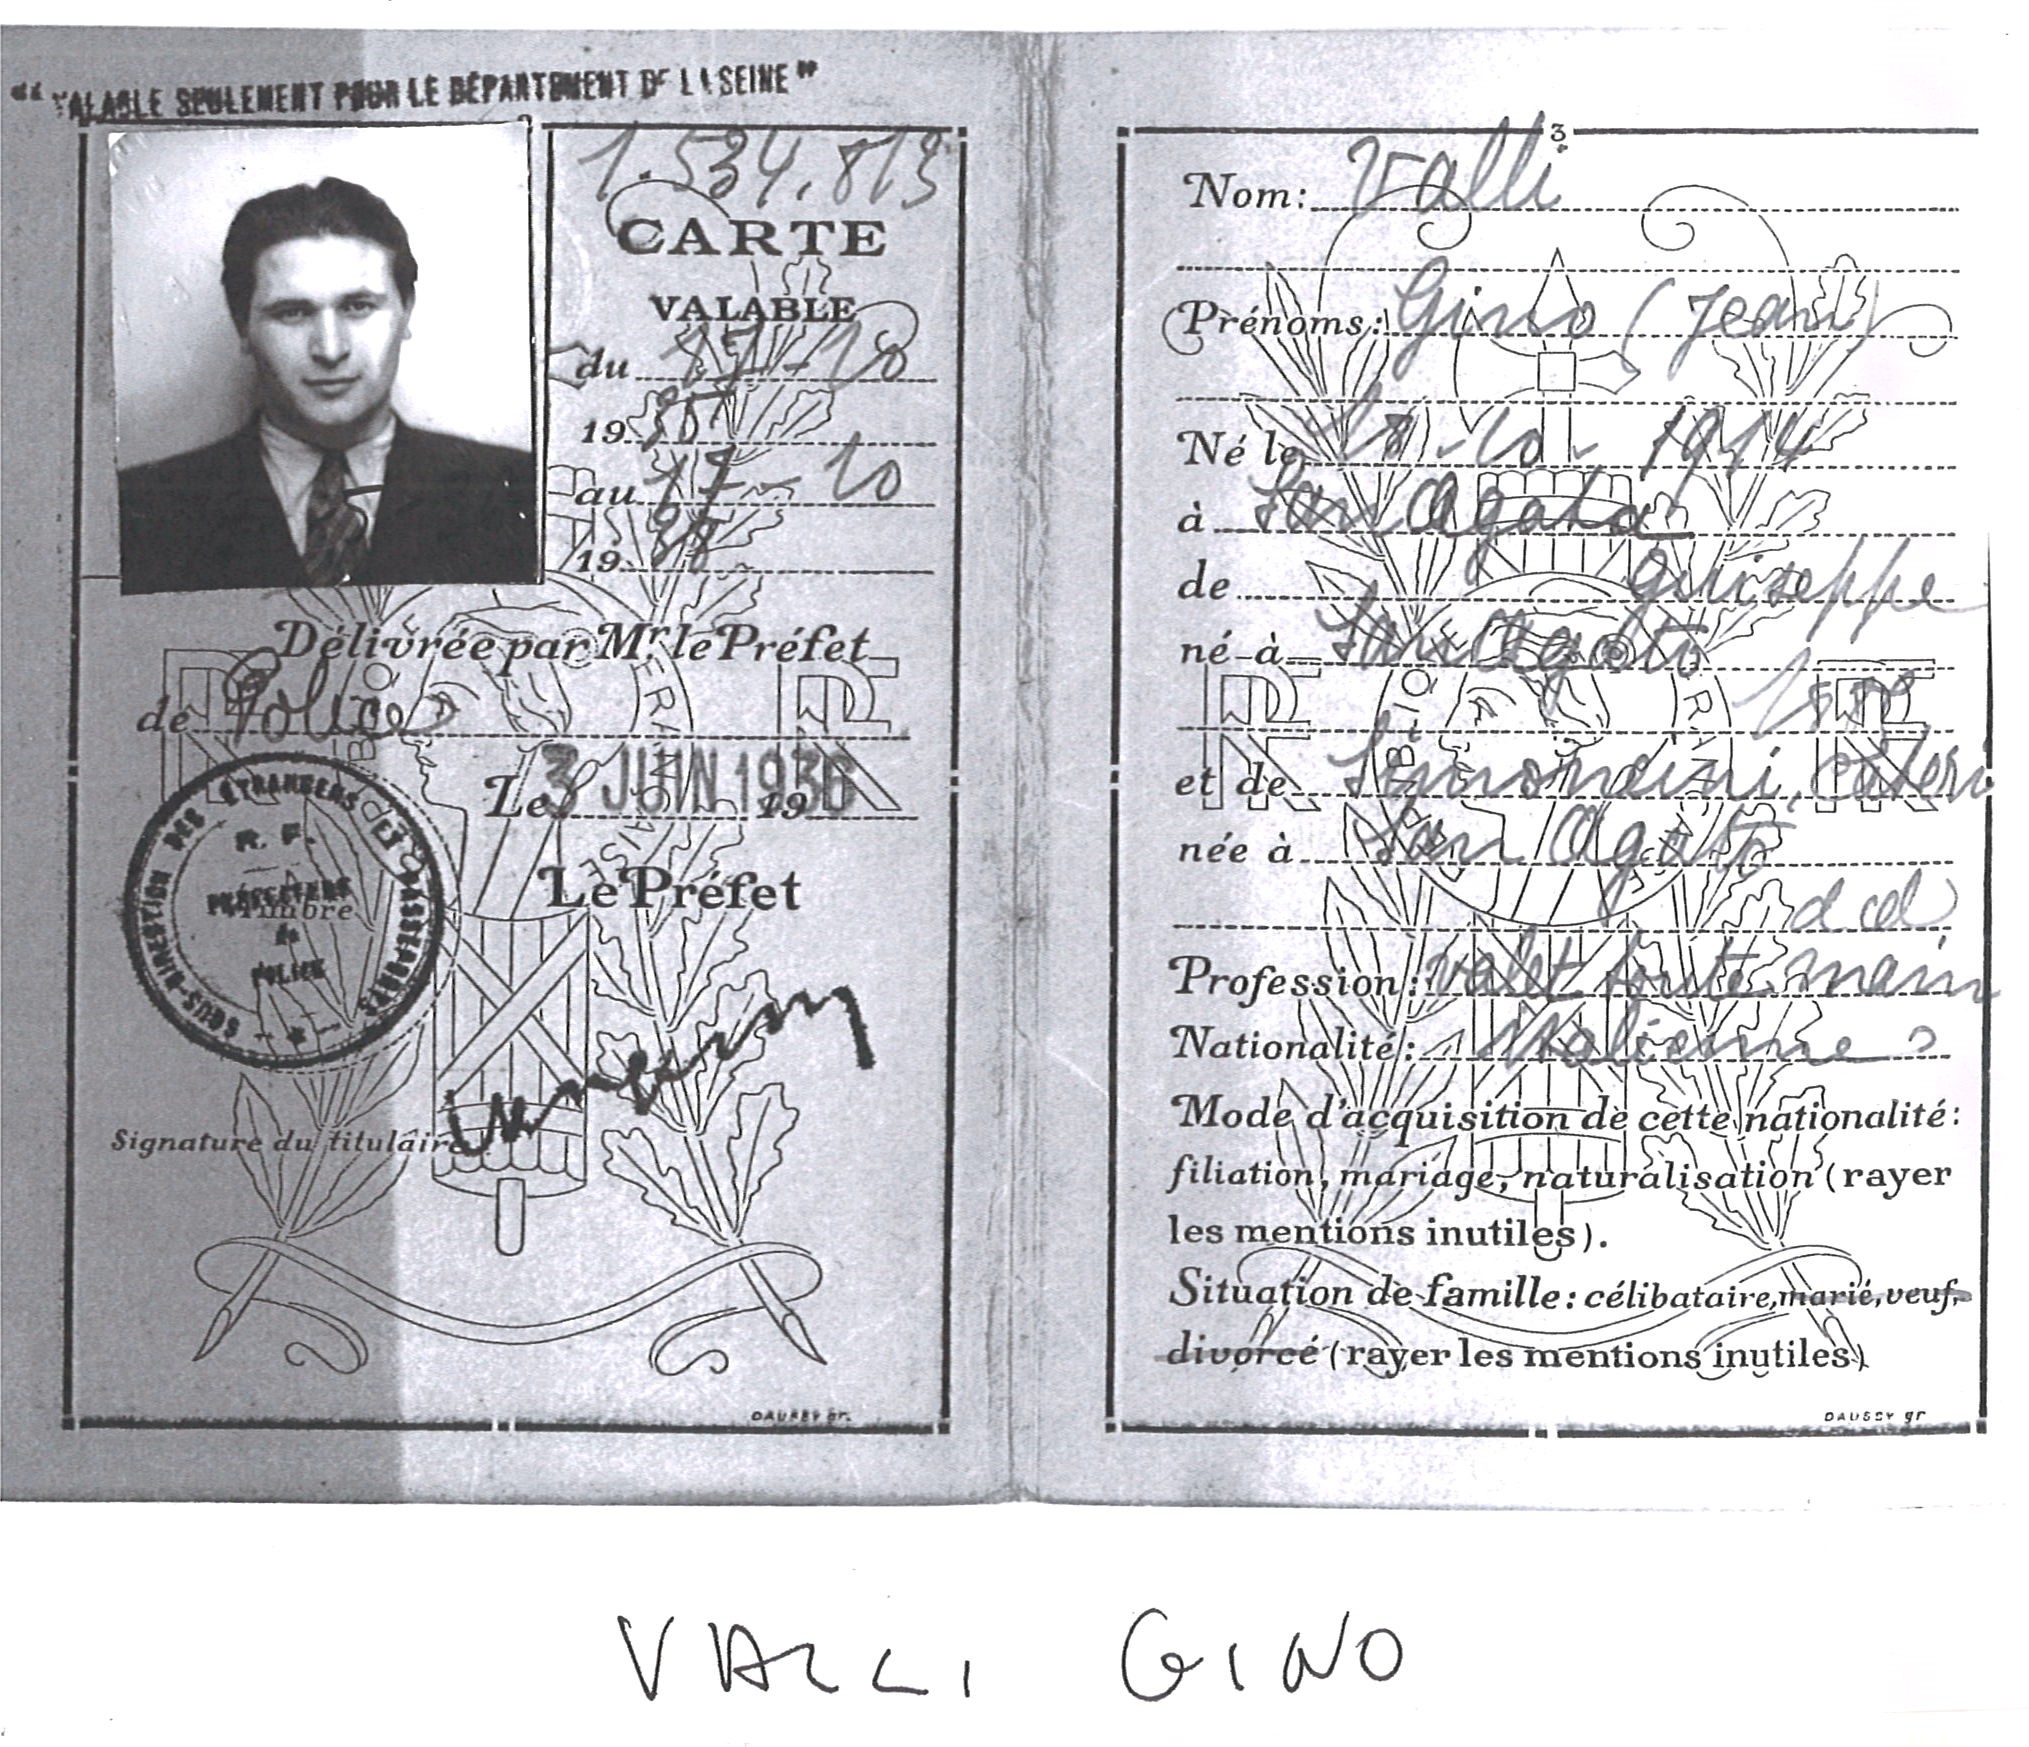 "VALABLE SEULEMENT POUR LE DÉPARTEMENT DE LA SEINE"
1.534.813
CARTE
VALABLE
du 17-10
19
au 17-10
19 38
Délivrée par Mr. le Préfet
de Police
Le 3 JUIN 1936 19
Le Préfet
SOUS-DIRECTION DES ÉTRANGERS ET PASSEPORTS
R. F.
PRÉFECTURE
Timbre
de
POLICE
Signature du titulaire
DAUSSY gr.
3
Nom: Valli
Prénoms: Gino (Jean)
Né le 18-10-1914
à San Agata
de Guiseppe
né à San Agata
et de Simondini, Cateri
née à San Agata
d cd
Profession: valet toute main
Nationalité: Italienne
Mode d'acquisition de cette nationalité:
filiation, mariage, naturalisation (rayer
les mentions inutiles).
Situation de famille: célibataire, marié, veuf,
divorcé (rayer les mentions inutiles)
DAUSSY gr
VALLI GINO